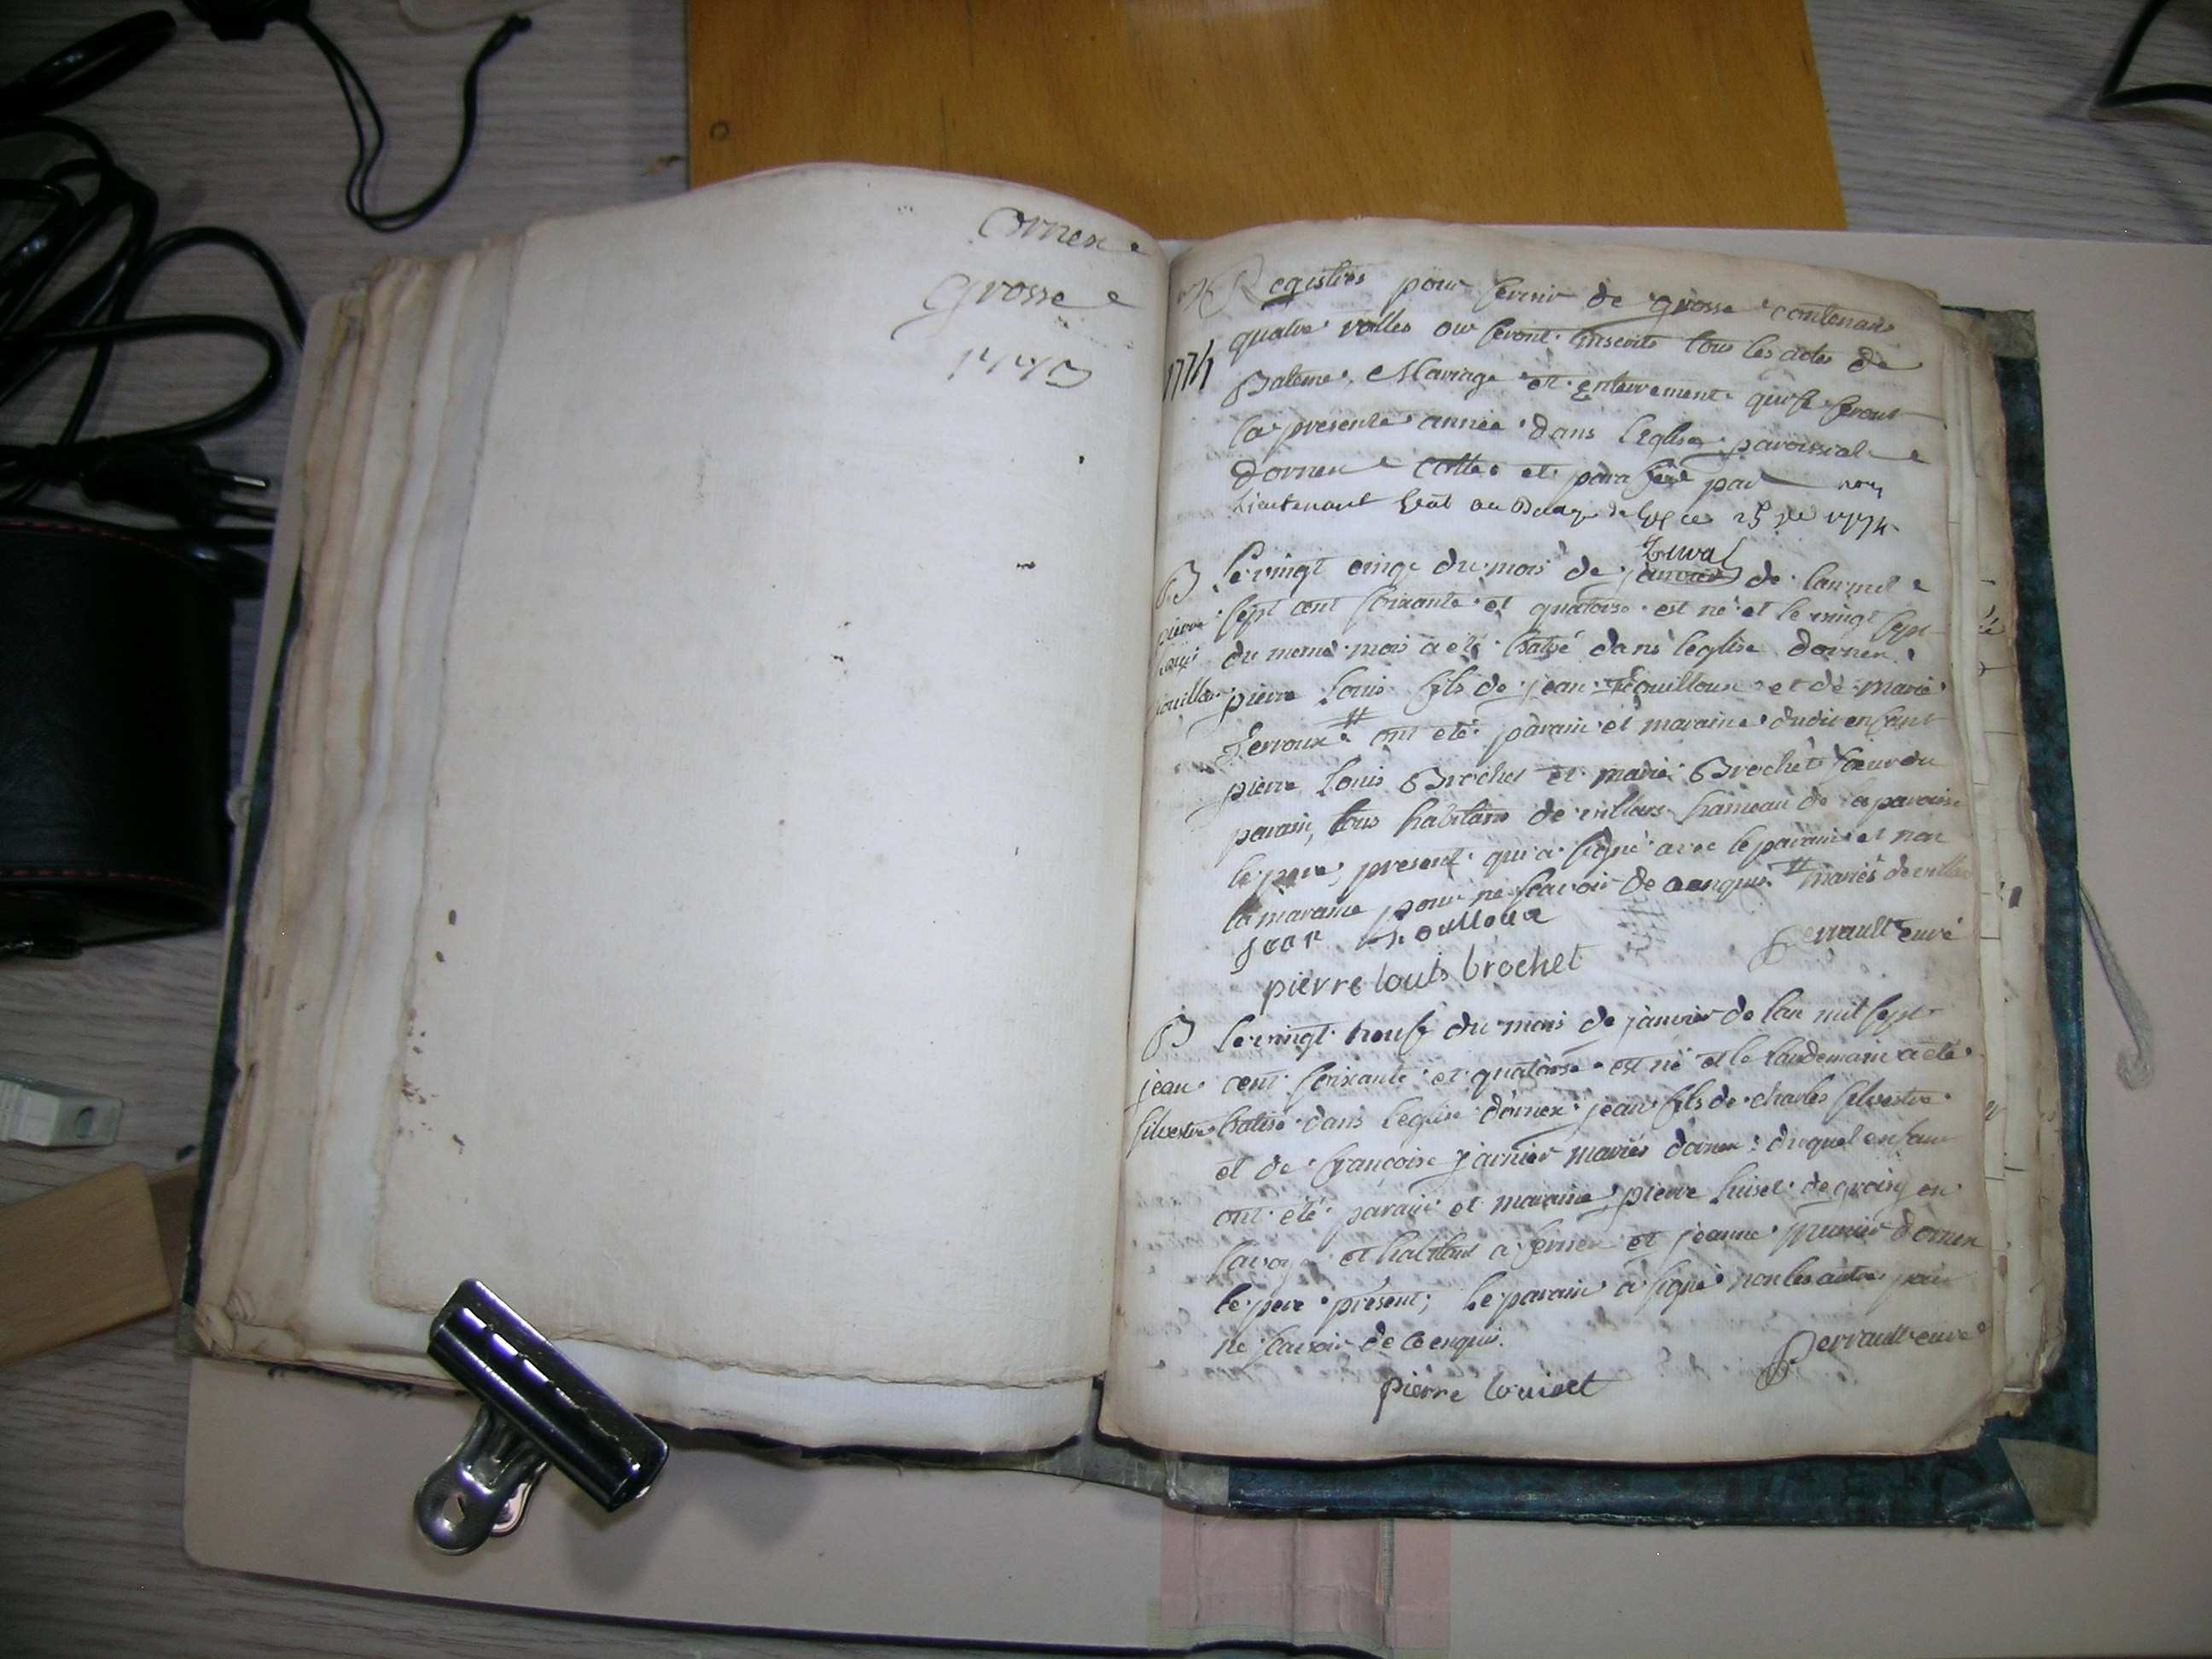 Ornex
grosse
1773
Registres pour servir de grosse contenans
quatre rolles ou seront inscrits tous les actes de
1774
Bateme, Mariage et enterrement qui se feront
la presente année dans l'Eglise paroissiale
dornex cottes et parafera par nous
Lieutenant au de Gex ce 25 1774
B Le vingt cinq du mois de janvier de lan mil
sept cent soixante et quatorse est né et le vingt sept
pierre
louis
du meme mois a eté batisé dans l'eglise dornex
pierre Louis fils de jean et de marie
Perroux # ont eté parain et maraine dudit enfant
pierre Louis Brochet et marie Brochet soeur du
parain, tous habitans de villars hameau de la paroisse
le pere present qui a signé avec le parain et non
la maraine pour ne scavoir de ce enquis. # mariés de villars
jean
Perrault curé
pierre louis brochet
B Le vingt neuf du mois de janvier de lan mil sept
jean cent soixante et quatorse est né et le landemain a eté
silvestre batisé dans leglise dornex jean fils de charles silvestre
et de françoise mariés dornex: duquel enfant
ont eté parain et maraine pierre de groisy en
savoye et habitant a fernex et jeanne munier dornex
le pere present; le parain a signé non les autres pour
ne scavoir de ce enquis.
Perrault curé
pierre louiset